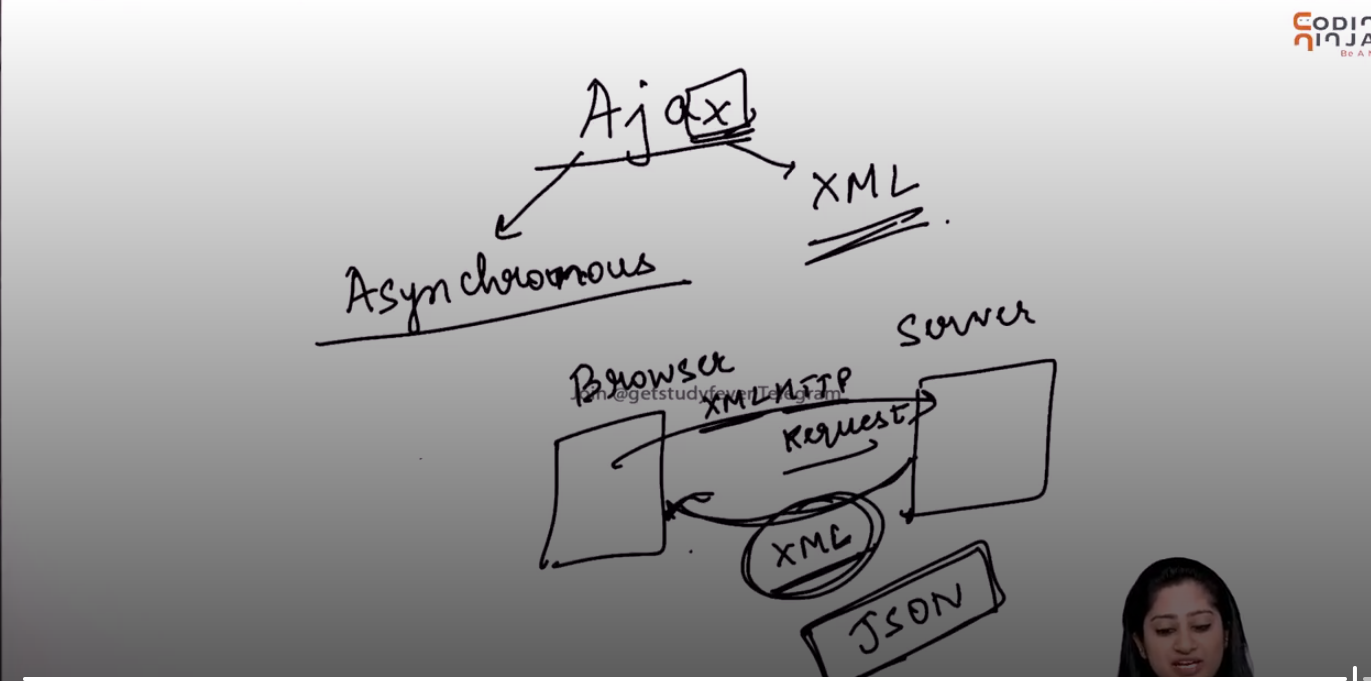 CODIN
NINJA
Be A N
Ajax
XML
Asynchronous
Server
Browser
Join @getstudyfever Telegram
XMLHTTP
Request
XML
JSON